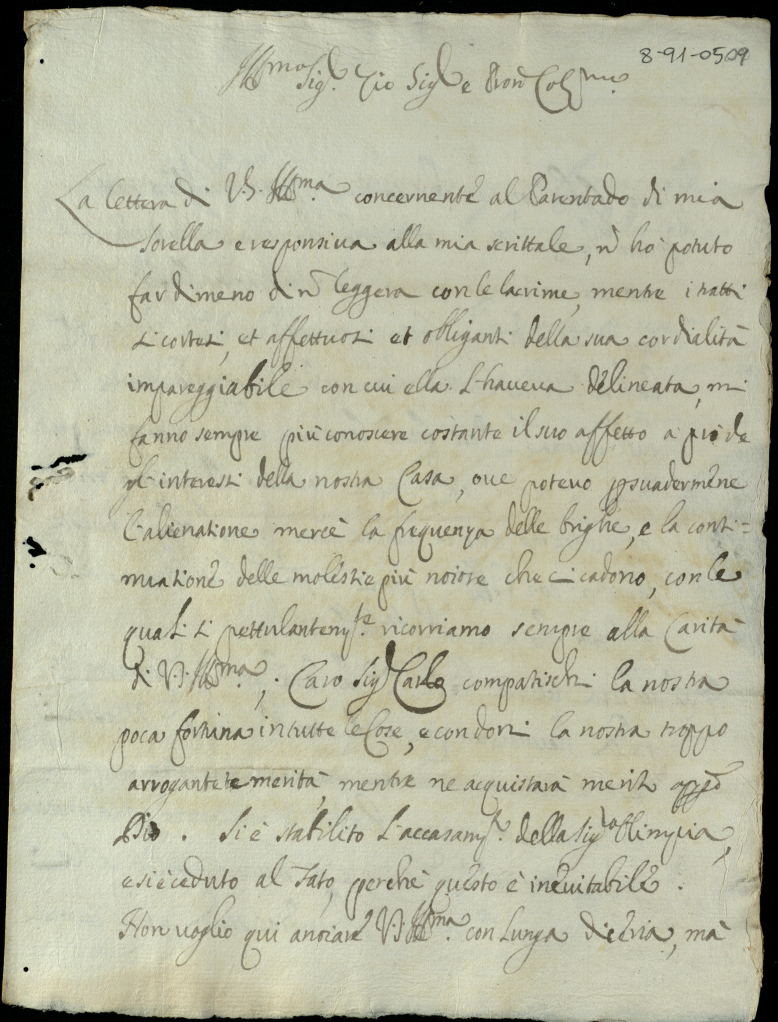 8-91-0509
Ill.mo Sig.r Zio Sig.r e Pron Col.mo
La lettera di V.S. Ill.ma concernente al Parentado di mia
sorella e responsiva alla mia scrittale, ñ hò potuto
far di meno di ñ leggera con le lacrime, mentre i tratti
sì cortesi, et affettuosi et obliganti della sua cordialità
impareggiabile con cui ella l'haveva delineata, mi
fanno sempre più conoscere costante il suo affetto a prò de
gl'interessi della nostra Casa, ove potevo persuadermene
l'alienatione mercè la frequenza delle brighe, e la conti=
nuatione delle molestie più noiose che ci cadono, con le
quali sì pettulantem.te ricorriamo sempre alla Carità
di V.S. Ill.ma; Caro Sig.r Carlo compatischi la nostra
poca fortuna in tutte le Cose, e condoni la nostra troppo
arrogante temerità, mentre ne acquistarà meriti appò
Dio. Si è stabilito l'accasam.to della Sig.ra Olimpia,
e si è ceduto al Fato, perchè questo è inevitabile.
Non voglio qui anoiare V.S. Ill.ma con lunga diceria, mà